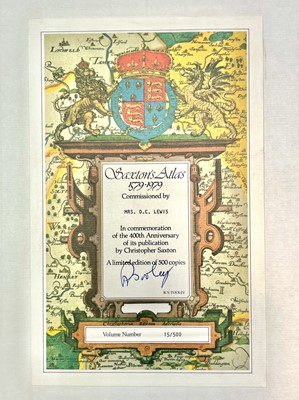 Saxton's Atlas
1579-1979
Commissioned by
MRS. D.C. LEWIS
In commemoration
of the 400th Anniversary
of its publication
by Christopher Saxton
A limited edition of 500 copies
R.V. TOOLEY
Volume Number 15/500